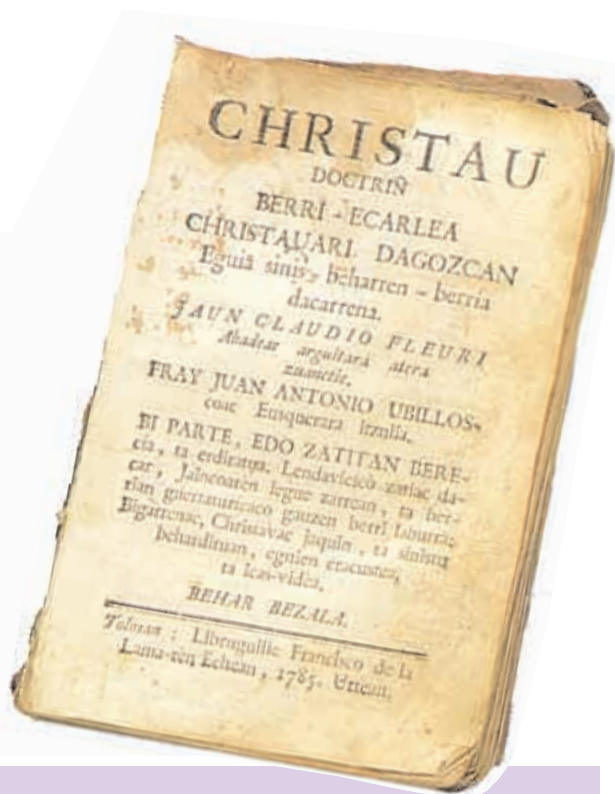 CHRISTAU
DOCTRIÑ
BERRI - ECARLEA
CHRISTAUARI DAGOZCAN
Eguia sinis - beharren - berria
dacarrena.
JAUN CLAUDIO FLEURI
Abadeac arguitara atera
zuanetic.
FRAY JUAN ANTONIO UBILLOS-
coac Eusquerara itzulia.
BI PARTE, EDO ZATITAN BERE-
cia, ta erdiratua. Lendavicico zatiac da-
car, Jaincoaren legue zarrean, ta ber-
rian guertaturicaco gauzen berri laburra;
Bigarrenac, Christavac jaquin, ta sinistu
behardituan, eguien eracustea,
ta icas-videa,
BEHAR BEZALA.
Tolosan : Libruguille Francisco de la
Lama-ren Echean, 1785. Urtean.